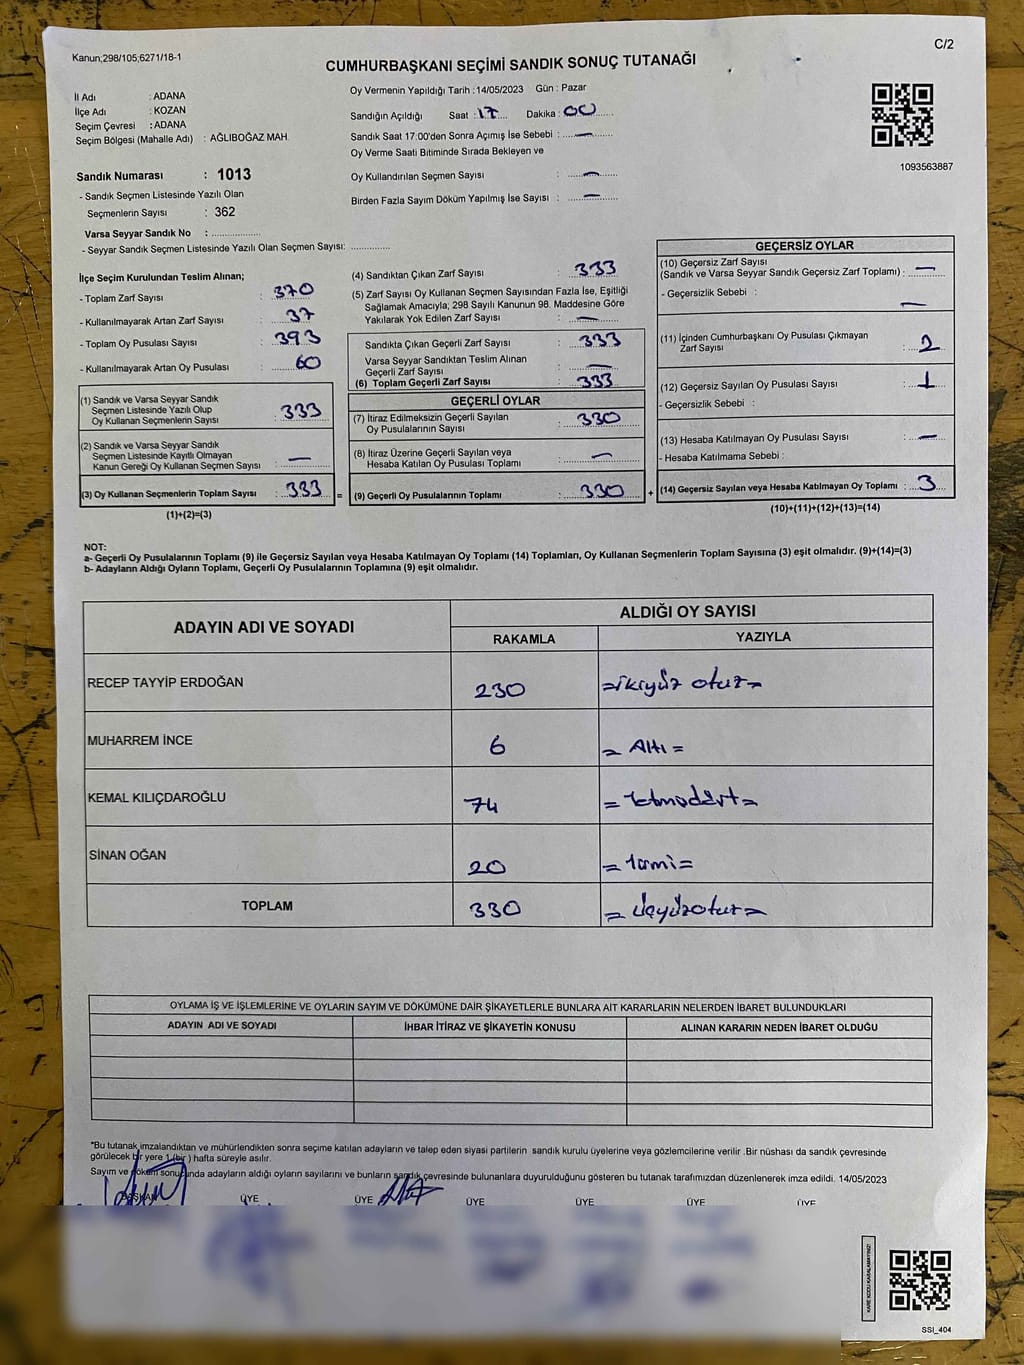 Kanun;298/105;6271/18-1
C/2
CUMHURBAŞKANI SEÇİMİ SANDIK SONUÇ TUTANAĞI
İl Adı : ADANA
İlçe Adı : KOZAN
Seçim Çevresi : ADANA
Seçim Bölgesi (Mahalle Adı) : AĞLIBOĞAZ MAH.
Sandık Numarası : 1013
- Sandık Seçmen Listesinde Yazılı Olan
Seçmenlerin Sayısı : 362
Varsa Seyyar Sandık No : ..................
- Seyyar Sandık Seçmen Listesinde Yazılı Olan Seçmen Sayısı: ..............
Oy Vermenin Yapıldığı Tarih : 14/05/2023 Gün : Pazar
Sandığın Açıldığı Saat : 17 Dakika : 00
Sandık Saat 17:00'den Sonra Açımış İse Sebebi : —
Oy Verme Saati Bitiminde Sırada Bekleyen ve
Oy Kullandırılan Seçmen Sayısı : —
Birden Fazla Sayım Döküm Yapılmış İse Sayısı : —
1093563887
İlçe Seçim Kurulundan Teslim Alınan;
- Toplam Zarf Sayısı : 370
- Kullanılmayarak Artan Zarf Sayısı : 37
- Toplam Oy Pusulası Sayısı : 393
- Kullanılmayarak Artan Oy Pusulası : 60
(1) Sandık ve Varsa Seyyar Sandık
Seçmen Listesinde Yazılı Olup
Oy Kullanan Seçmenlerin Sayısı : 333
(2) Sandık ve Varsa Seyyar Sandık
Seçmen Listesinde Kayıtlı Olmayan
Kanun Gereği Oy Kullanan Seçmen Sayısı : —
(3) Oy Kullanan Seçmenlerin Toplam Sayısı : 333 =
(1)+(2)=(3)
(4) Sandıktan Çıkan Zarf Sayısı : 333
(5) Zarf Sayısı Oy Kullanan Seçmen Sayısından Fazla İse, Eşitliği
Sağlamak Amacıyla; 298 Sayılı Kanunun 98. Maddesine Göre
Yakılarak Yok Edilen Zarf Sayısı : —
Sandıkta Çıkan Geçerli Zarf Sayısı : 333
Varsa Seyyar Sandıktan Teslim Alınan
Geçerli Zarf Sayısı : —
(6) Toplam Geçerli Zarf Sayısı : 333
GEÇERLİ OYLAR
(7) İtiraz Edilmeksizin Geçerli Sayılan
Oy Pusulalarının Sayısı : 330
(8) İtiraz Üzerine Geçerli Sayılan veya
Hesaba Katılan Oy Pusulası Toplamı : —
(9) Geçerli Oy Pusulalarının Toplamı : 330 +
GEÇERSİZ OYLAR
(10) Geçersiz Zarf Sayısı
(Sandık ve Varsa Seyyar Sandık Geçersiz Zarf Toplamı) : —
- Geçersizlik Sebebi : —
(11) İçinden Cumhurbaşkanı Oy Pusulası Çıkmayan
Zarf Sayısı : 2
(12) Geçersiz Sayılan Oy Pusulası Sayısı : 1
- Geçersizlik Sebebi :
(13) Hesaba Katılmayan Oy Pusulası Sayısı : —
- Hesaba Katılmama Sebebi :
(14) Geçersiz Sayılan veya Hesaba Katılmayan Oy Toplamı : 3
(10)+(11)+(12)+(13)=(14)
NOT:
a- Geçerli Oy Pusulalarının Toplamı (9) ile Geçersiz Sayılan veya Hesaba Katılmayan Oy Toplamı (14) Toplamları, Oy Kullanan Seçmenlerin Toplam Sayısına (3) eşit olmalıdır. (9)+(14)=(3)
b- Adayların Aldığı Oyların Toplamı, Geçerli Oy Pusulalarının Toplamına (9) eşit olmalıdır.
ADAYIN ADI VE SOYADI
ALDIĞI OY SAYISI
RAKAMLA YAZIYLA
RECEP TAYYİP ERDOĞAN 230 =ikiyüz otuz=
MUHARREM İNCE 6 = Altı =
KEMAL KILIÇDAROĞLU 74 = Yetmişdört=
SİNAN OĞAN 20 = Yirmi=
TOPLAM 330 = Üçyüzotuz=
OYLAMA İŞ VE İŞLEMLERİNE VE OYLARIN SAYIM VE DÖKÜMÜNE DAİR ŞİKAYETLERLE BUNLARA AİT KARARLARIN NELERDEN İBARET BULUNDUKLARI
ADAYIN ADI VE SOYADI İHBAR İTİRAZ VE ŞİKAYETİN KONUSU ALINAN KARARIN NEDEN İBARET OLDUĞU
*Bu tutanak imzalandıktan ve mühürlendikten sonra seçime katılan adayların ve talep eden siyasi partilerin sandık kurulu üyelerine veya gözlemcilerine verilir .Bir nüshası da sandık çevresinde
görülecek bir yere 1 (bir ) hafta süreyle asılır.
Sayım ve döküm sonucunda adayların aldığı oyların sayılarını ve bunların sandık çevresinde bulunanlara duyurulduğunu gösteren bu tutanak tarafımızdan düzenlenerek imza edildi. 14/05/2023
BAŞKAN ÜYE ÜYE ÜYE ÜYE ÜYE ÜYE
KARE KODU KARALAMAYINIZ!
SSI_404